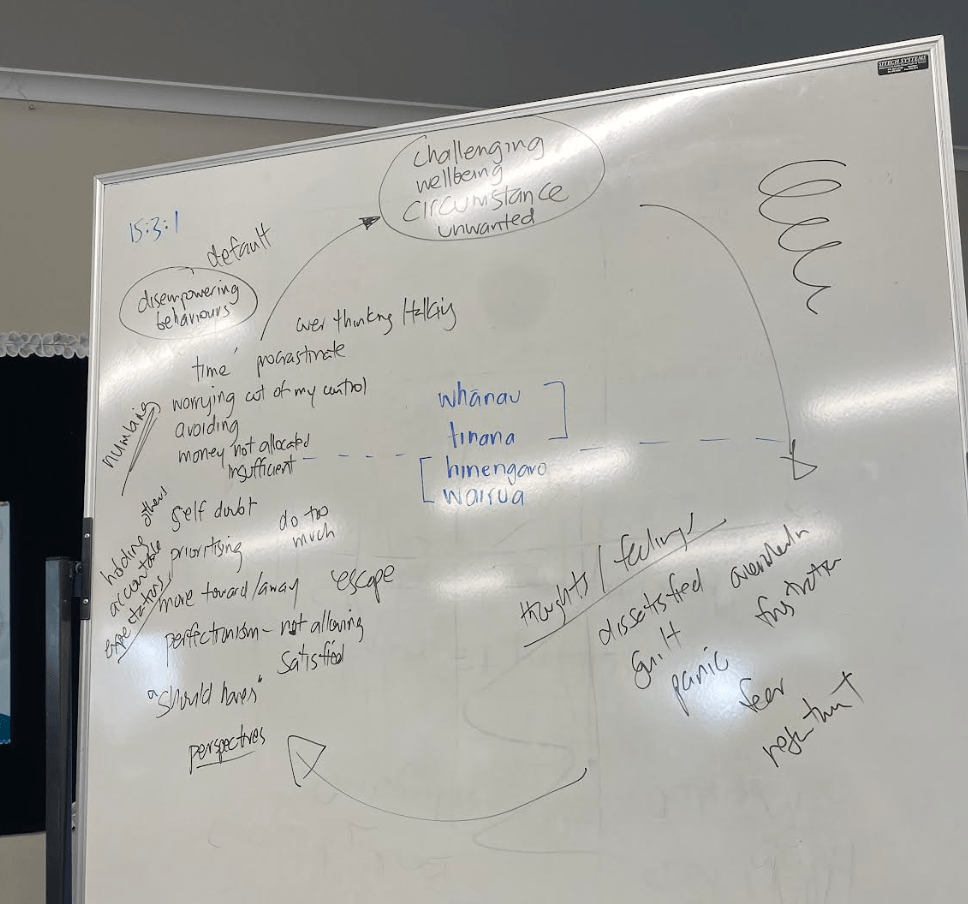 challenging
wellbeing
circumstance
unwanted
15:3:1
default
disempowering
behaviours
over thinking /talking
time procrastinate
worrying out of my control
avoiding
money not allocated
insufficient
numbing
whānau
tinana
hinengaro
wairua
self doubt
do too
much
prioritising
holding others
accountable
expectations
move toward/away
escape
perfectionism - not allowing
satisfied
"should haves"
perspectives
thoughts / feelings
dissatisfied
guilt
panic
frustration
fear